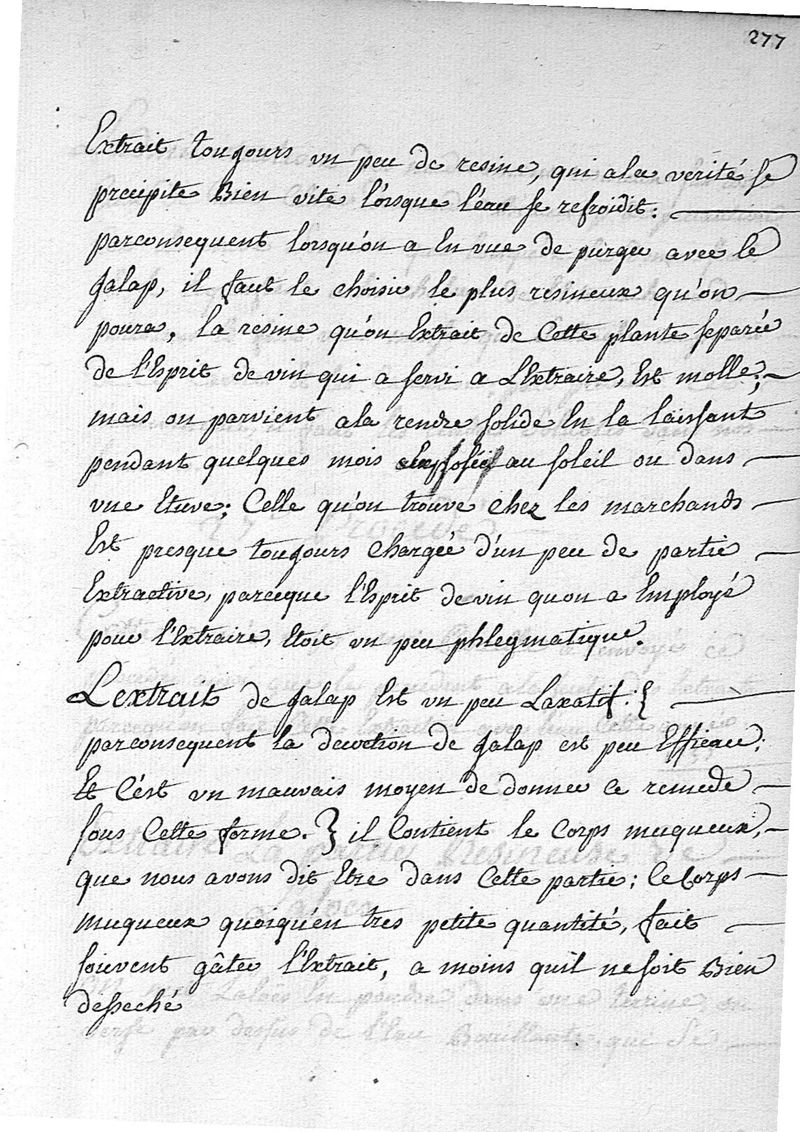 277
Extrait toujours un peu de resine, qui a la verité se
precipite Bien vite lorsque l'eau se refroidit:
parconsequent lorsqu'on a En vue de purger avec le
Jalap, il faut le choisir le plus resineux qu'on
poura, la resine qu'on Extrait de Cette plante separée
de l'Esprit de vin qui a servi a L'Extraire, Est molle;
mais on parvient a la rendre solide En la laissant
pendant quelques mois au soleil ou dans
une Etuve; Celle qu'on trouve chez les marchands
Est presque toujours chargée d'un peu de partie
Extractive, parceque l'Esprit de vin quon a Employé
pour l'Extraire, Etoit un peu phlegmatique.
L'extrait de Jalap Est un peu Laxatif: {
parconsequent la decoction de Jalap est peu Efficace;
Et C'est un mauvais moyen de donner ce remede
sous Cette forme. } il Contient le Corps muqueux,
que nous avons dit Etre dans Cette partie; Ce Corps
muqueux quoiqu'en tres petite quantité, fait
souvent gâter l'Extrait, a moins quil ne soit Bien
desseché